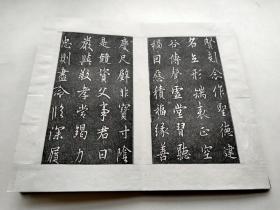 賢剋念作聖德建
名立形端表正空
谷傳聲虛堂習聽
禍因惡積福緣善
慶尺璧非寶寸陰
是競資父事君曰
嚴與敬孝當竭力
忠則盡命臨深履